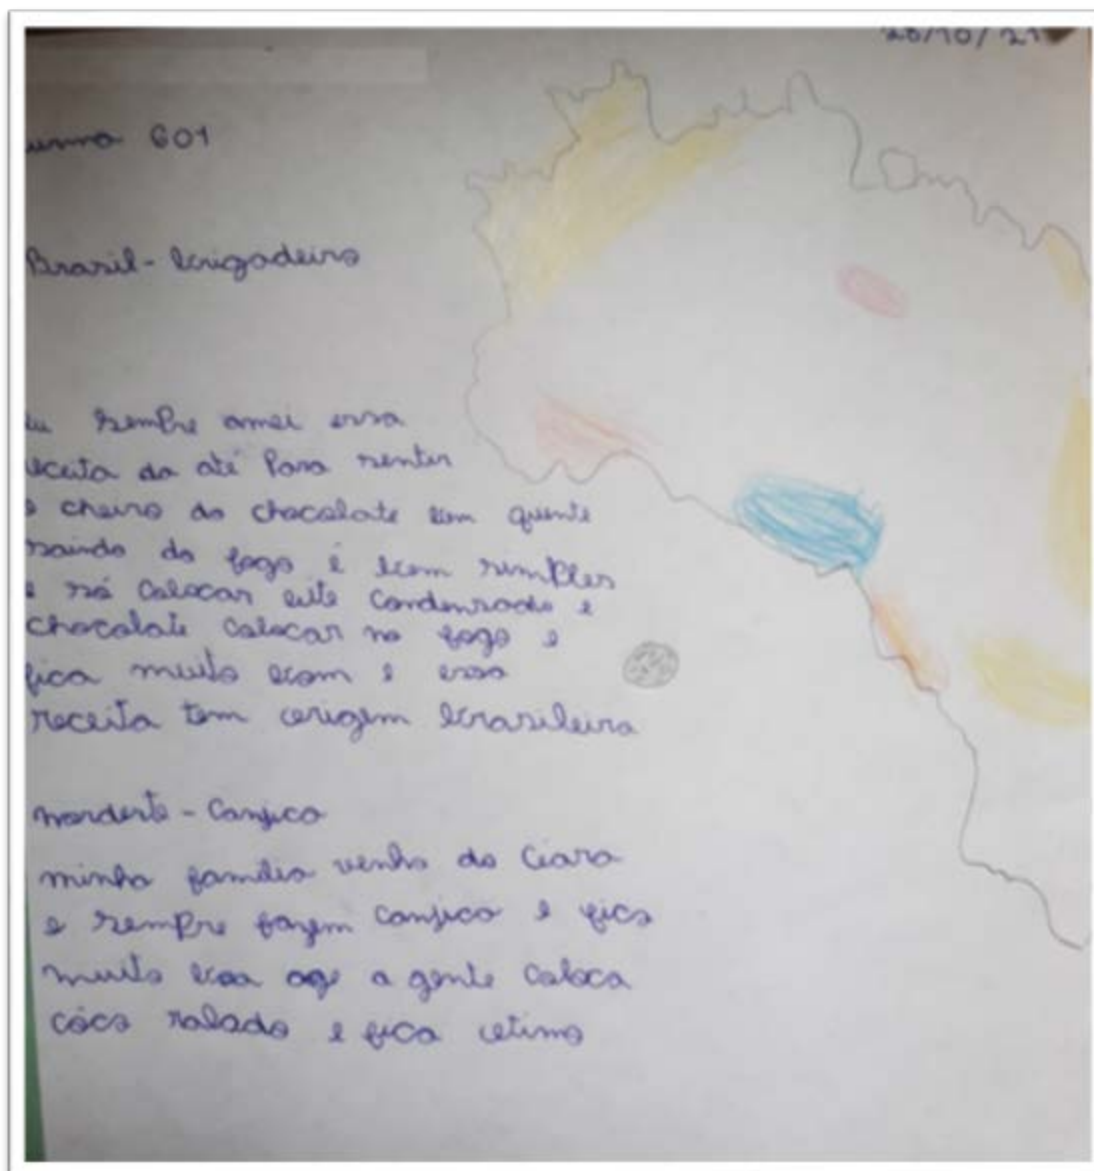 28/10/21
urma 601
Brasil - brigadeiro
eu sempre amei essa
receita da até Para sentir
o cheiro do chocolate bem quente
saindo do fogo é bem simples
e só Colocar leite Condensado e
chocolate Colocar no fogo e
fica muito bom e essa
receita tem origem brasileira
nordeste - Canjica
minha familia venho do Ceara
e sempre fazem canjica e fica
muito boa a gente Coloca
côco ralado e fica otimo